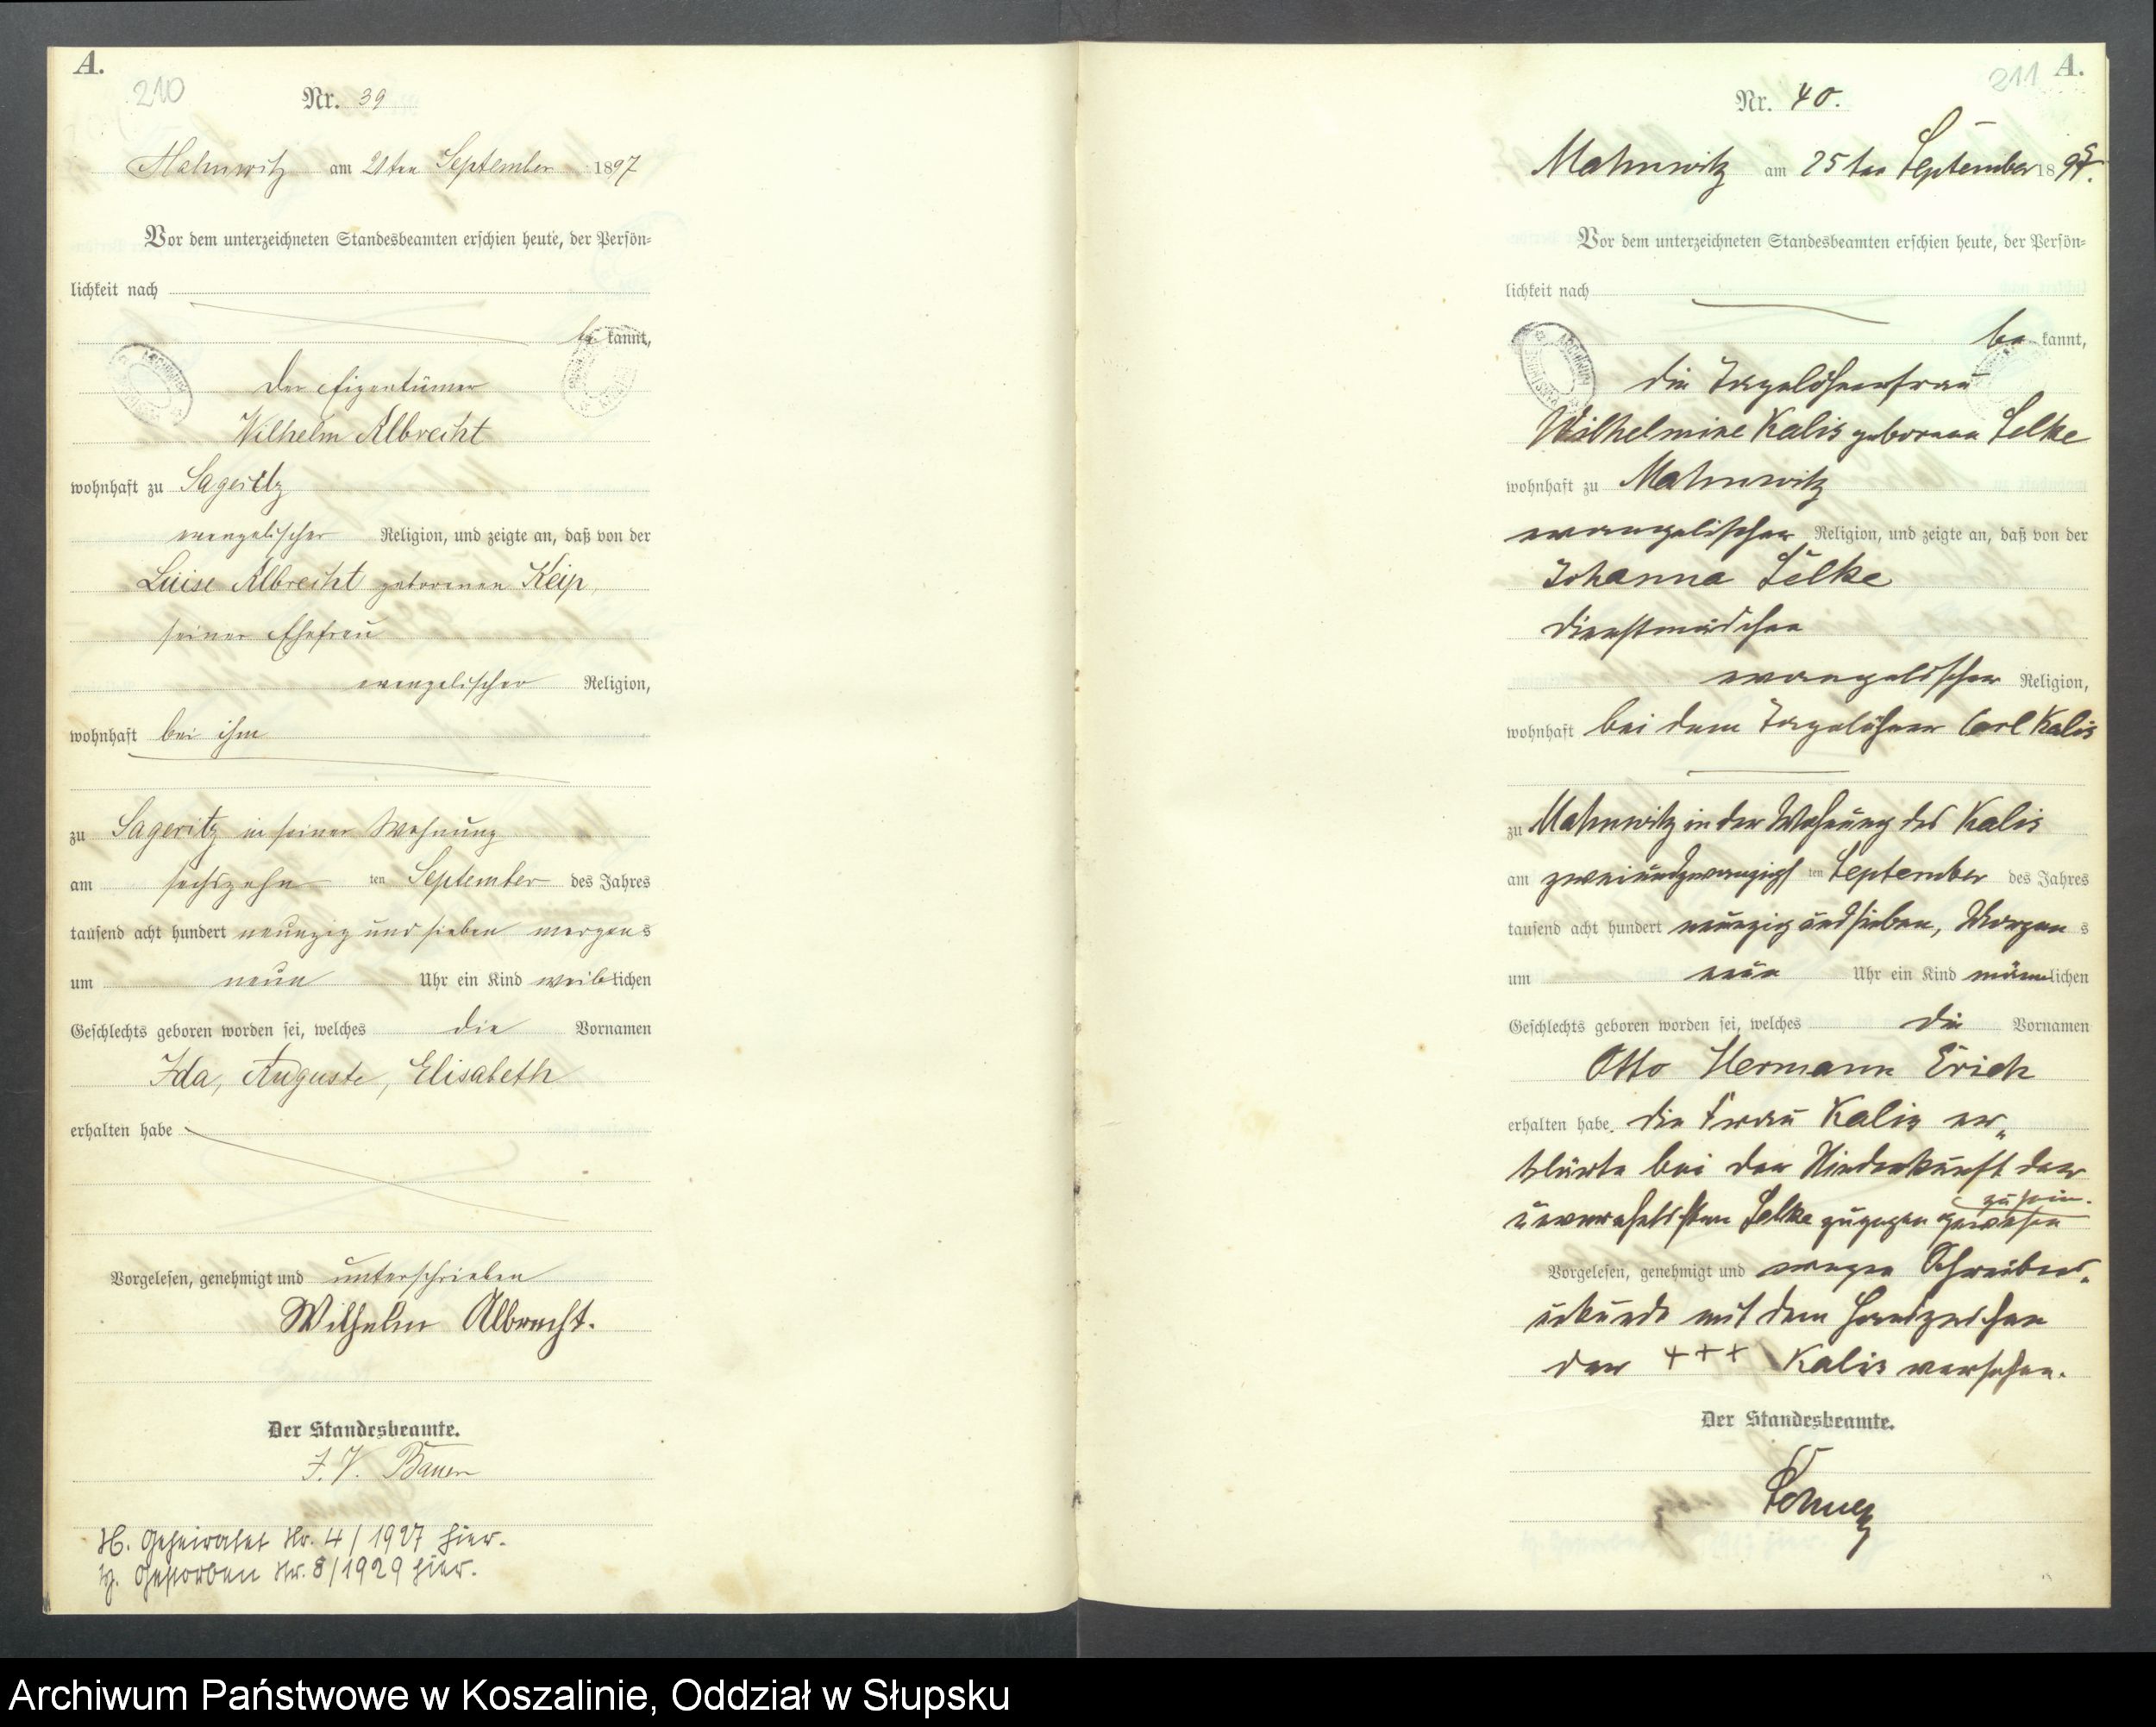 A.
210
Nr. 39
Mahnwitz am 21ten September 1897
Vor dem unterzeichneten Standesbeamten erschien heute, der Persön=
lichkeit nach
be kannt,
der Eigentümer
Wilhelm Albrecht
wohnhaft zu Sageritz
evangelischer Religion, und zeigte an, daß von der
Luise Albrecht geborenen Keip,
seiner Ehefrau
evangelischer Religion,
wohnhaft bei ihm
zu Sageritz in seiner Wohnung
am sechszehn ten September des Jahres
tausend acht hundert neunzig und sieben morgens
um neun Uhr ein Kind weiblichen
Geschlechts geboren worden sei, welches die Vornamen
Ida, Auguste, Elisabeth
erhalten habe
Vorgelesen, genehmigt und unterschrieben
Wilhelm Albrecht.
Der Standesbeamte.
I. V. Bauer
H. Geheiratet Nr. 4/1927 hier.
Gestorben Nr. 8/1929 hier.
211 A.
Nr. 40.
Mahnwitz am 25ten September 1897.
Vor dem unterzeichneten Standesbeamten erschien heute, der Persön=
lichkeit nach
be kannt,
die Tagelöhnerfrau
Wilhelmine Kalis geborene Selke
wohnhaft zu Mahnwitz
evangelischer Religion, und zeigte an, daß von der
Johanna Selke
Dienstmädchen
evangelischer Religion,
wohnhaft bei dem Tagelöhner Carl Kalis
zu Mahnwitz in der Wohnung des Kalis
am zweiundzwanzigst ten September des Jahres
tausend acht hundert neunzig und sieben, Morgen s
um neun Uhr ein Kind männlichen
Geschlechts geboren worden sei, welches die Vornamen
Otto Hermann Erich
erhalten habe. Die Frau Kalis er„
klärte bei der Niederkunft der
unverehelichten Selke zugegen gewesen zu sein.
Vorgelesen, genehmigt und wegen Schreibens„
unkunde mit dem Handzeichen
der +++ Kalis versehen.
Der Standesbeamte.
Archiwum Państwowe w Koszalinie, Oddział w Słupsku